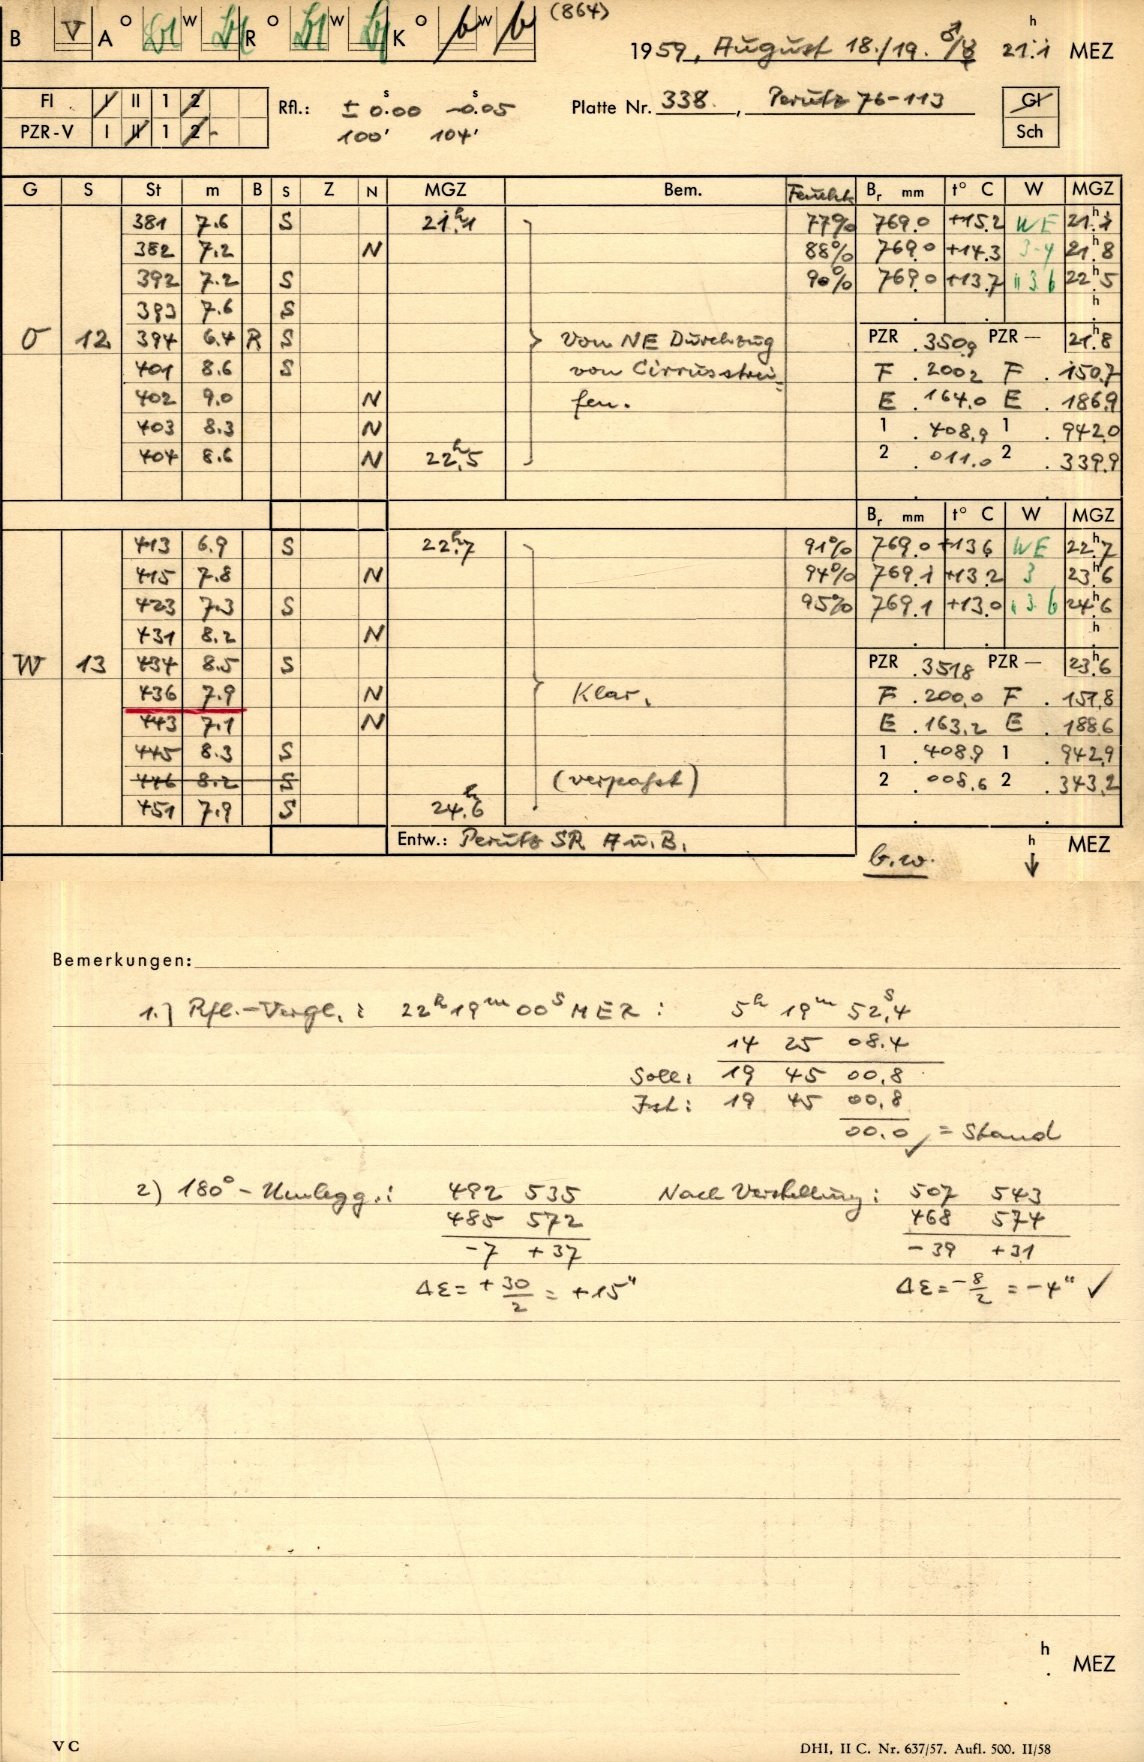 B V A O W R O W K O W (864)
1959, August 18./19. ♂/☿ 21.1 h MEZ
Fl. I II 1 2
PZR-V I II 1 2
Rfl.: ± 0.00 s -0.05 s
100' 104'
Platte Nr. 338, Perutz 76-113
Gl
Sch
G S St m B s Z N MGZ Bem. Feucht. Br mm t° C W MGZ
381 7.6 S 21.h1 77% 769.0 +15.2 WE 21.h1
382 7.2 N 88% 769.0 +14.3 3-4 21.h8
392 7.2 S 90% 769.0 +13.7 " 3.6 22.h5
393 7.6 S h
O 12 394 6.4 R S Von NE Durchzug PZR .3509 PZR — 21.h8
401 8.6 S von Cirrusstrei- F .2002 F .150.7
402 9.0 N fen. E .164.0 E .186.9
403 8.3 N 1 .408.9 1 .942.0
404 8.6 N 22.h5 2 .011.0 2 .339.9
Br mm t° C W MGZ
413 6.9 S 22.h7 91% 769.0 +13.6 WE 22.h7
415 7.8 N 94% 769.1 +13.2 3 23.h6
423 7.3 S 95% 769.1 +13.0 " 3.6 24.h6
431 8.2 N h
W 13 434 8.5 S PZR .3518 PZR — 23.h6
436 7.9 N Klar. F .200.0 F .151.8
443 7.1 N E .163.2 E .188.6
445 8.3 S 1 .408.9 1 .942.9
446 8.2 S (verpaßt) 2 .008.6 2 .343.2
451 7.9 S 24.h6
Entw.: Perutz SR A u. B. b.w. h ↓ MEZ
Bemerkungen:
1.) Rfl.-Vergl.: 22h 19m 00s MER: 5h 19m 52s.4
14 25 08.4
Soll: 19 45 00.8
Ist: 19 45 00.8
00.0 ✓ = Stand
2) 180° - Umlegg.: 492 535 Nach Verstellung: 507 543
485 572 468 574
-7 +37 -39 +31
ΔE = +30/2 = +15" ΔE = -8/2 = -4" ✓
h . MEZ
V C DHI, II C. Nr. 637/57. Aufl. 500. II/58